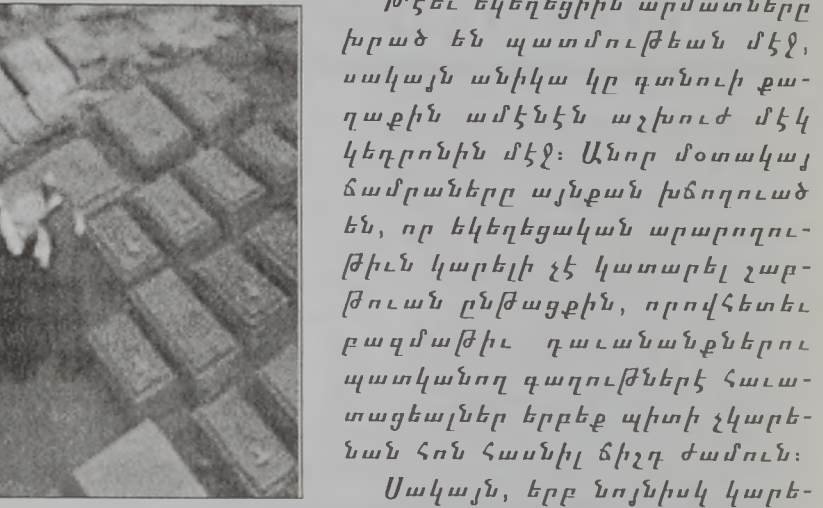 Թէեւ եկեղեցիին արմատները
խրած են պատմութեան մէջ,
սակայն անիկա կը գտնուի քա-
ղաքին ամէնէն աշխուժ մէկ
կեդրոնին մէջ: Անոր մօտակայ
ճամրաները այնքան խճողուած
են, որ եկեղեցական արարողու-
թիւն կարելի չէ կատարել շաբ-
թուան ընթացքին, որովհետեւ
բազմաթիւ դաւանանքներու
պատկանող գաղութներէ հաւա-
տացեալներ երբեք պիտի չկարե-
նան հոն հասնիլ ճիշդ ժամուն:
Սակայն, երբ նոյնիսկ կարե-